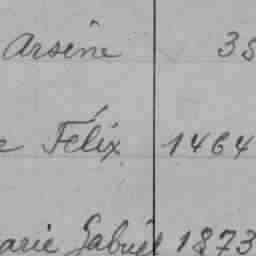 Arsène 38
Félix 1464
arie Gabriel 1873